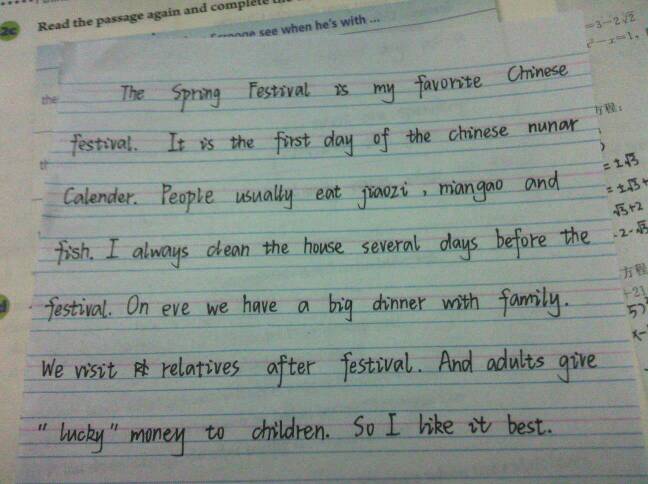 2c Read the passage again and complete
see when he's with ...
the
=3-2√2
-x=1,
The Spring Festival is my favorite Chinese
方程:
festival. It is the first day of the chinese nunar
=±√3
Calender. People usually eat jiaozi, niangao and
√3+2
fish. I always clean the house several days before the
方程
festival. On eve we have a big dinner with family.
We visit relatives after festival. And adults give
"lucky" money to children. So I like it best.